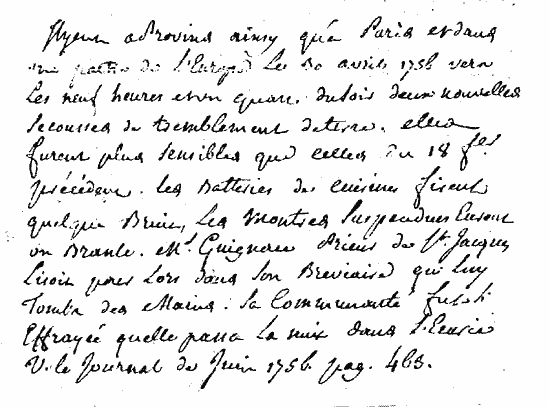 Il y eut a Provins ainsy qu'a Paris et dans
une partie de l'Europe Les 30 avril 1756 vers
Les neuf heures et un quart du soir deux nouvelles
secousses de tremblement de terre. elles
furent plus sensibles que celles du 18 f.er
précédent. les Batteries des cuisines firent
quelque Bruit, Les Montres Suspendues Eurent
un Branle. M.r Guignerée Prieur de S.t Jacques
Lisoit pour Lors dans Son Breviaire qui Luy
Tomba des Mains. Sa Communauté fut si
Effrayée quelle passa La nuit dans L'Ecurie
V. le Journal de Juin 1756. pag. 463.